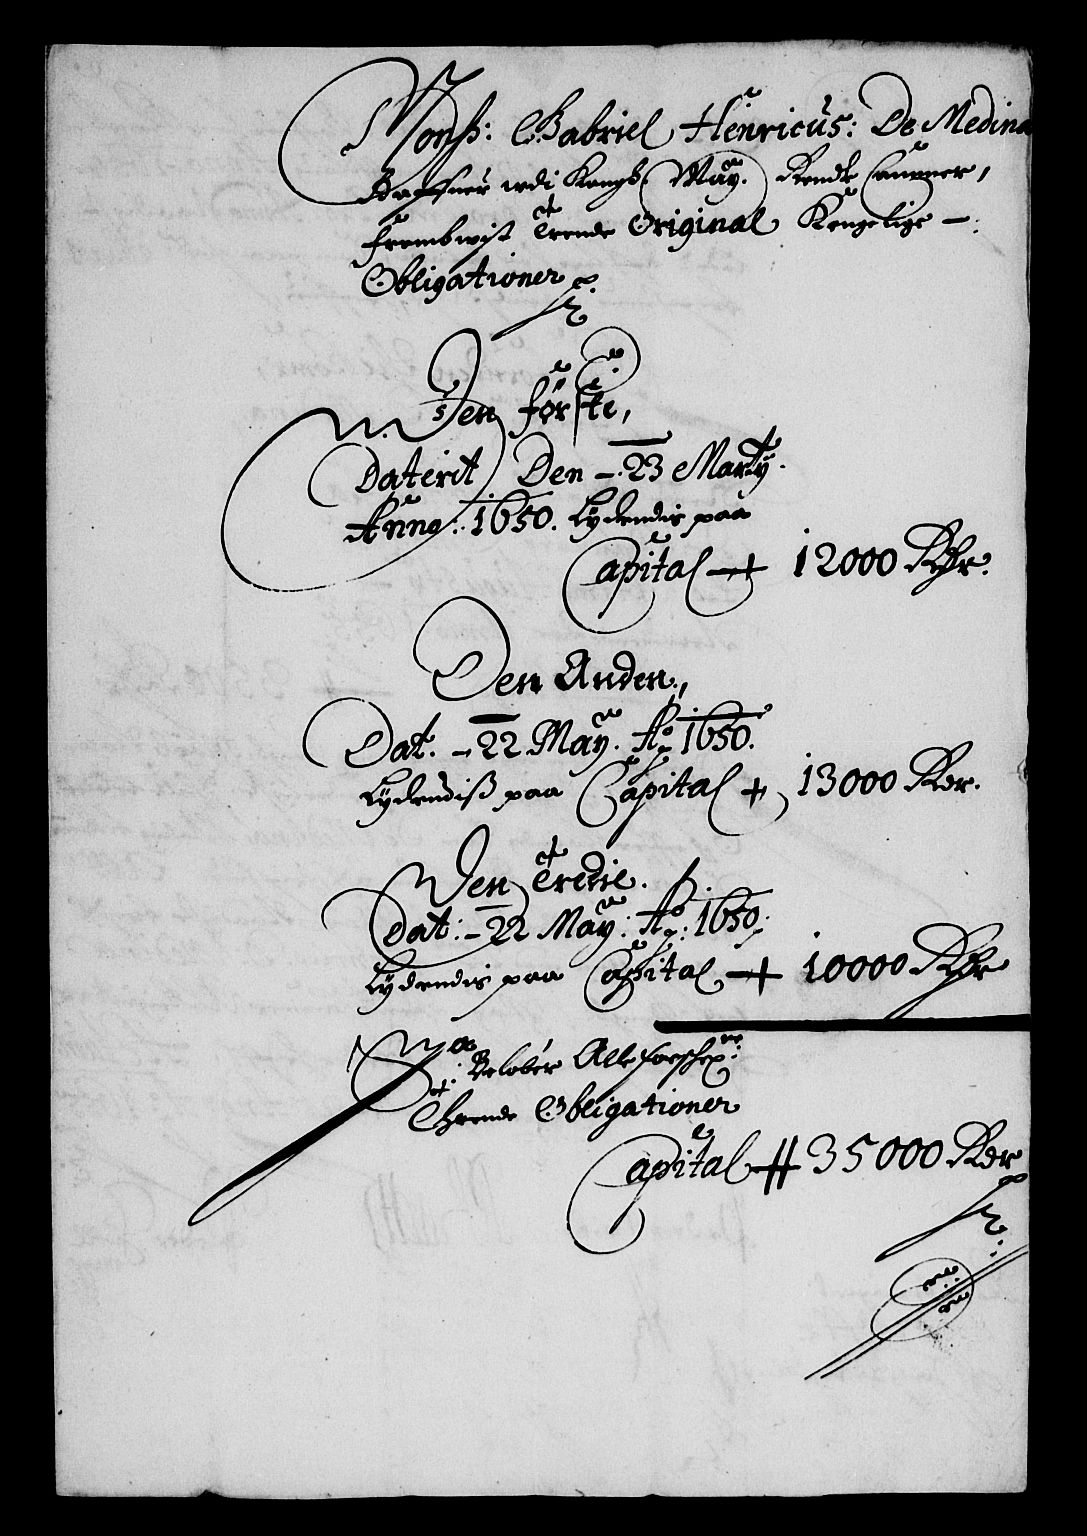 Monß: Gabriel Henricus: De Medina
udi Kongl. May. Rente Cammer,
frembwist Trende Original Kongelige —:
Obligationer
Den förste,
Daterit Den —. 23 Marty.
Anno: 1650. Lydendis paa
Capital — 12000 Rdr.
Den Anden,
Dat. — 22 May. Ao. 1650.
Lydendiß paa Capital + 13000 Rdr.
Den Tredie.
Dat: — 22 May: Ao: 1650.
Lydendis paa Capital — 10000 Rdr
Belober Alle forschr:
Thrende Obligationer
Capital 35000 Rdr